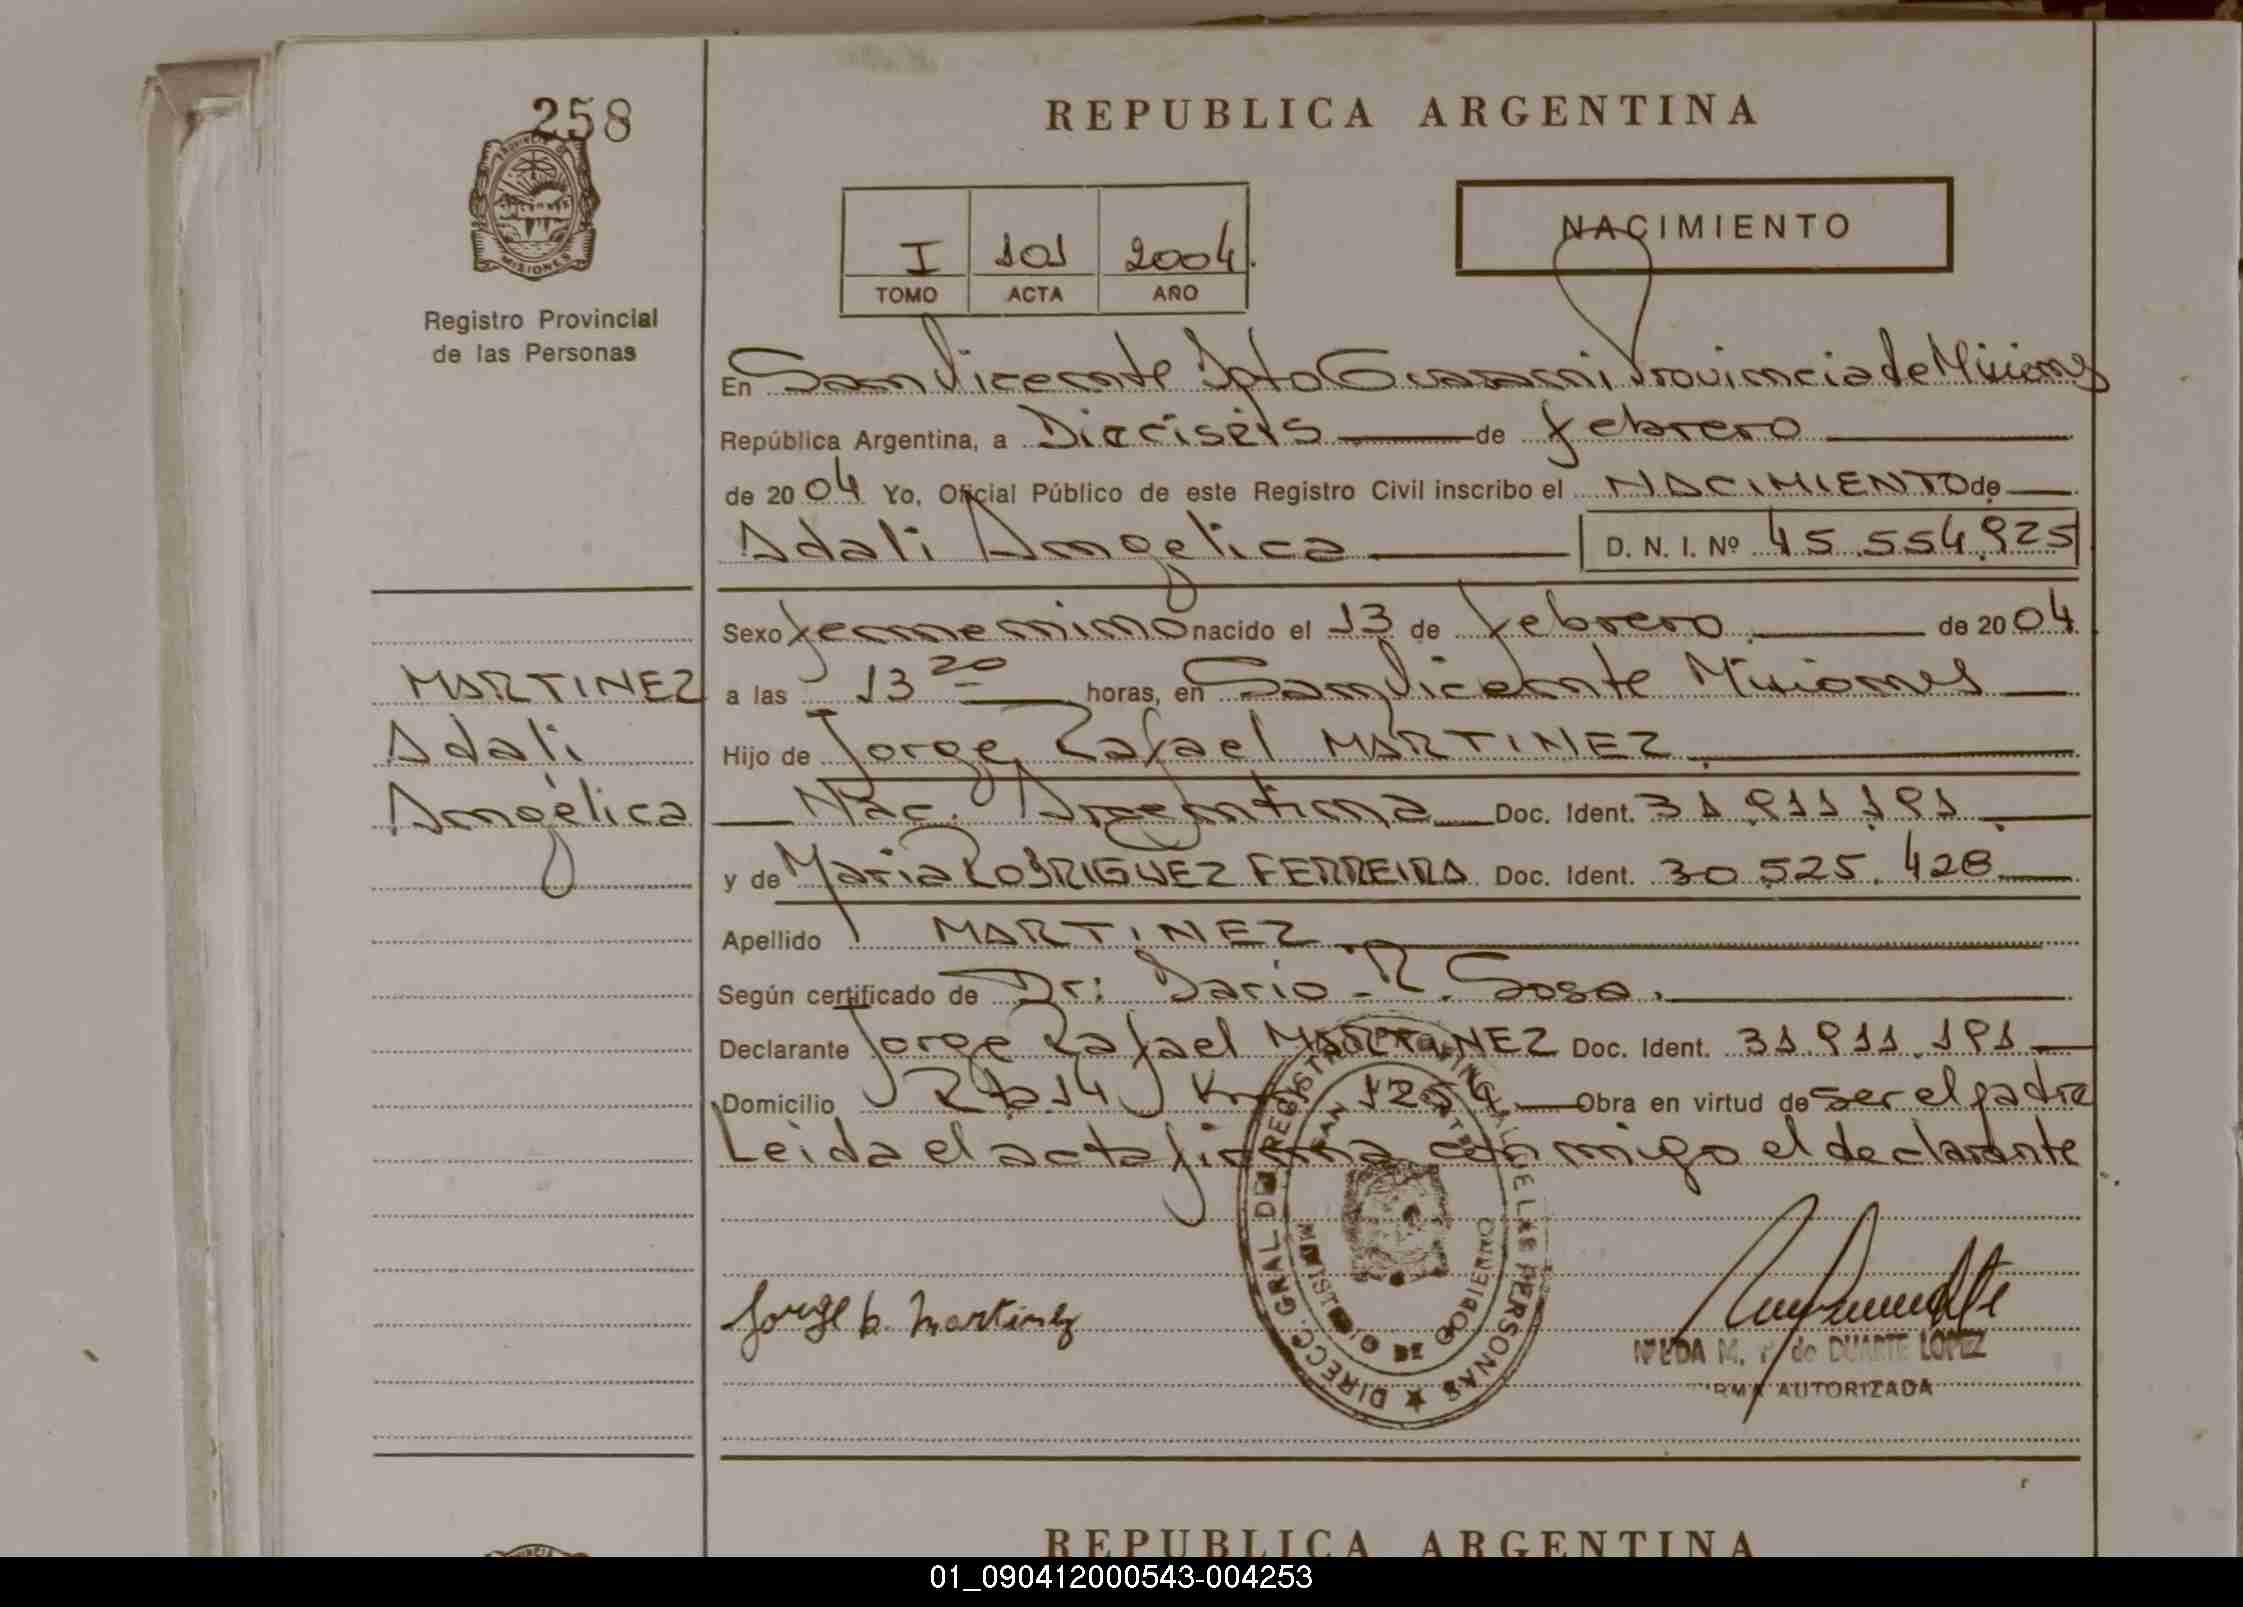 258
REPUBLICA ARGENTINA
PROVINCIA D
MISIONES
Registro Provincial
de las Personas
I 101 2004.
TOMO ACTA AÑO
NACIMIENTO
En San Vicente Dpto Guarani Provincia de Misiones
República Argentina, a Dieciséis de febrero
de 2004 Yo, Oficial Público de este Registro Civil inscribo el NACIMIENTO de
Adali Angelica D. N. I. Nº 45.554.925
Sexo femenino nacido el 13 de febrero de 2004
MARTINEZ
Adali
Angélica
a las 13 20 horas, en San Vicente Misiones
Hijo de Jorge Rafael MARTINEZ
Nac. Argentina Doc. Ident. 31.911.191
y de Maria RODRIGUEZ FERREIRA Doc. Ident. 30.525.428
Apellido MARTINEZ
Según certificado de Dr: Dario R. Sosa.
Declarante Jorge Rafael MARTINEZ Doc. Ident. 31.911.191
Domicilio 14 Km 1254 Obra en virtud de ser el padre
Leida el acta firma conmigo el declarante
DIRECC. GRAL DEL REGISTRO PROVINCIAL DE LAS PERSONAS
SAN VICENTE
MINISTERIO DE GOBIERNO
Jorge R. Martinez
M. de DUARTE LOPEZ
FIRMA AUTORIZADA
REPUBLICA ARGENTINA
01_090412000543-004253